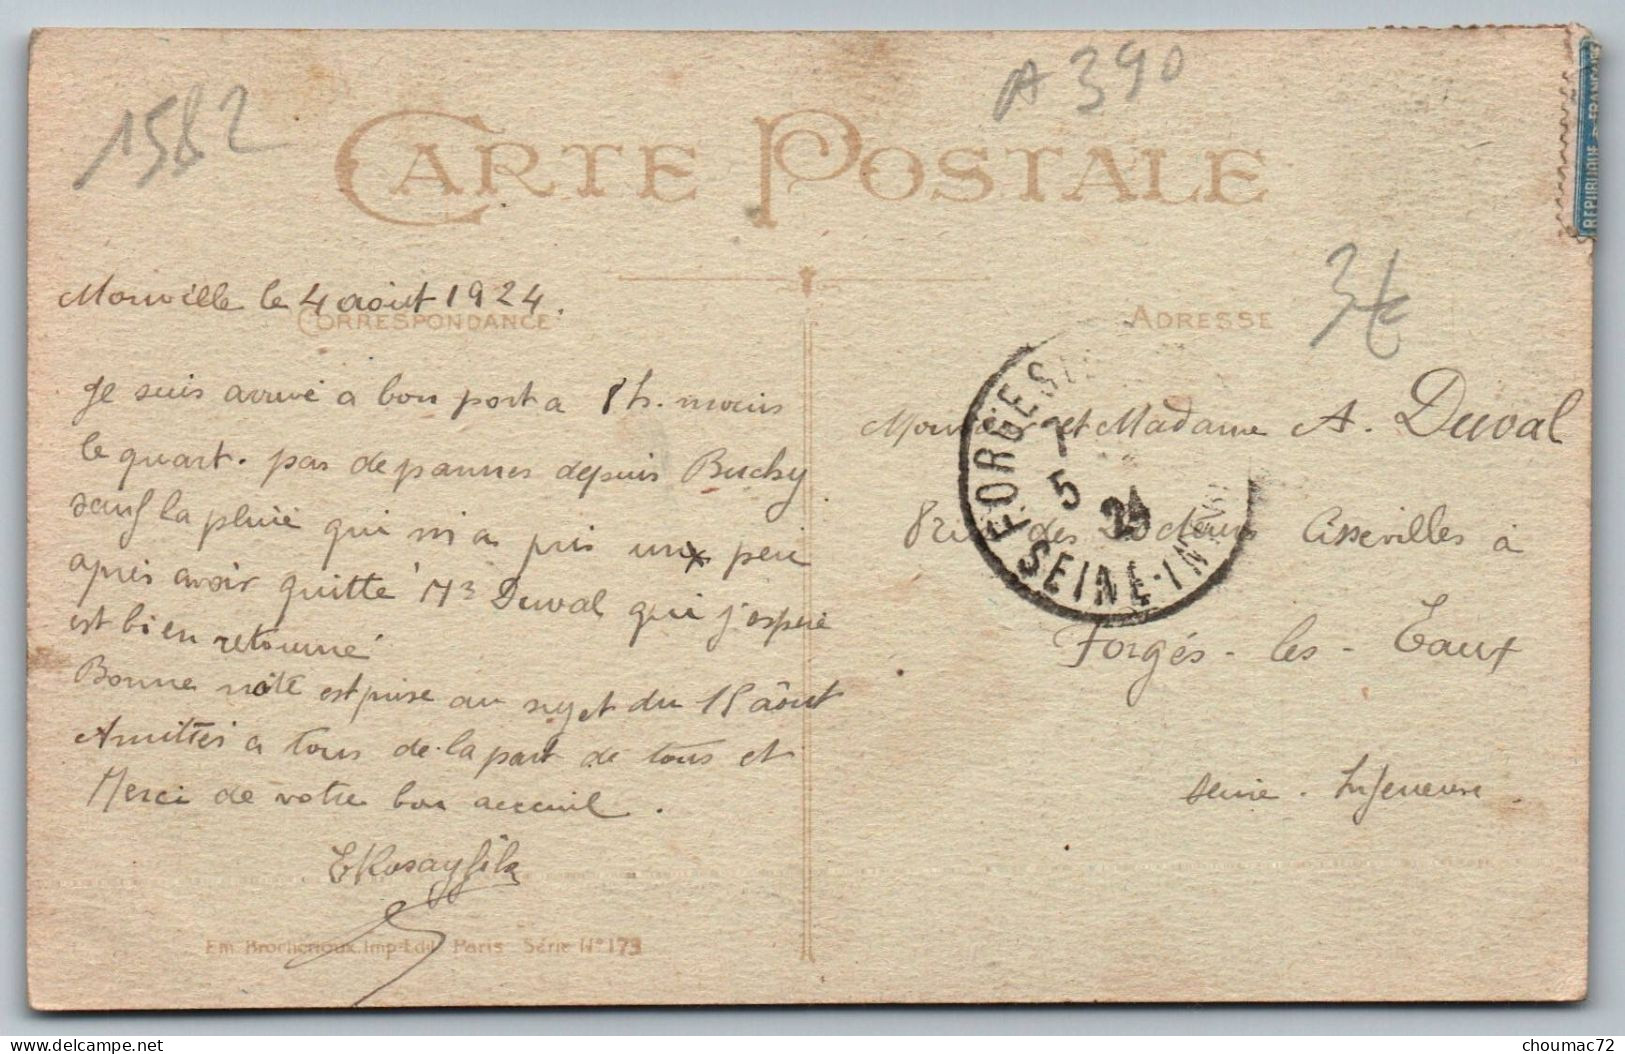 1582
A 390
CARTE POSTALE
REPUBLIQUE FRANCAISE
3€
Monville le 4 août 1924.
CORRESPONDANCE
ADRESSE
Je suis arrivé a bon port a 8 h. moins
le quart. pas de pannes depuis Buchy
sauf la pluie qui m'a pris un peu
apres avoir quitté Mr Duval qui j'espere
est bien retourné
Bonne note est prise au sujet du 15 août
Amitiés a tous de la part de tous et
Merci de votre bon accueil.
Rosay fils
Monsieur et Madame A. Duval
8 rue des Docteurs Assevilles à
Forgés-les-Eaux
Seine-Inferieure.
FORGES
5 24
SEINE-INF
Em. Brocherioux. Imp-Edit Paris Série N° 173
choumac72